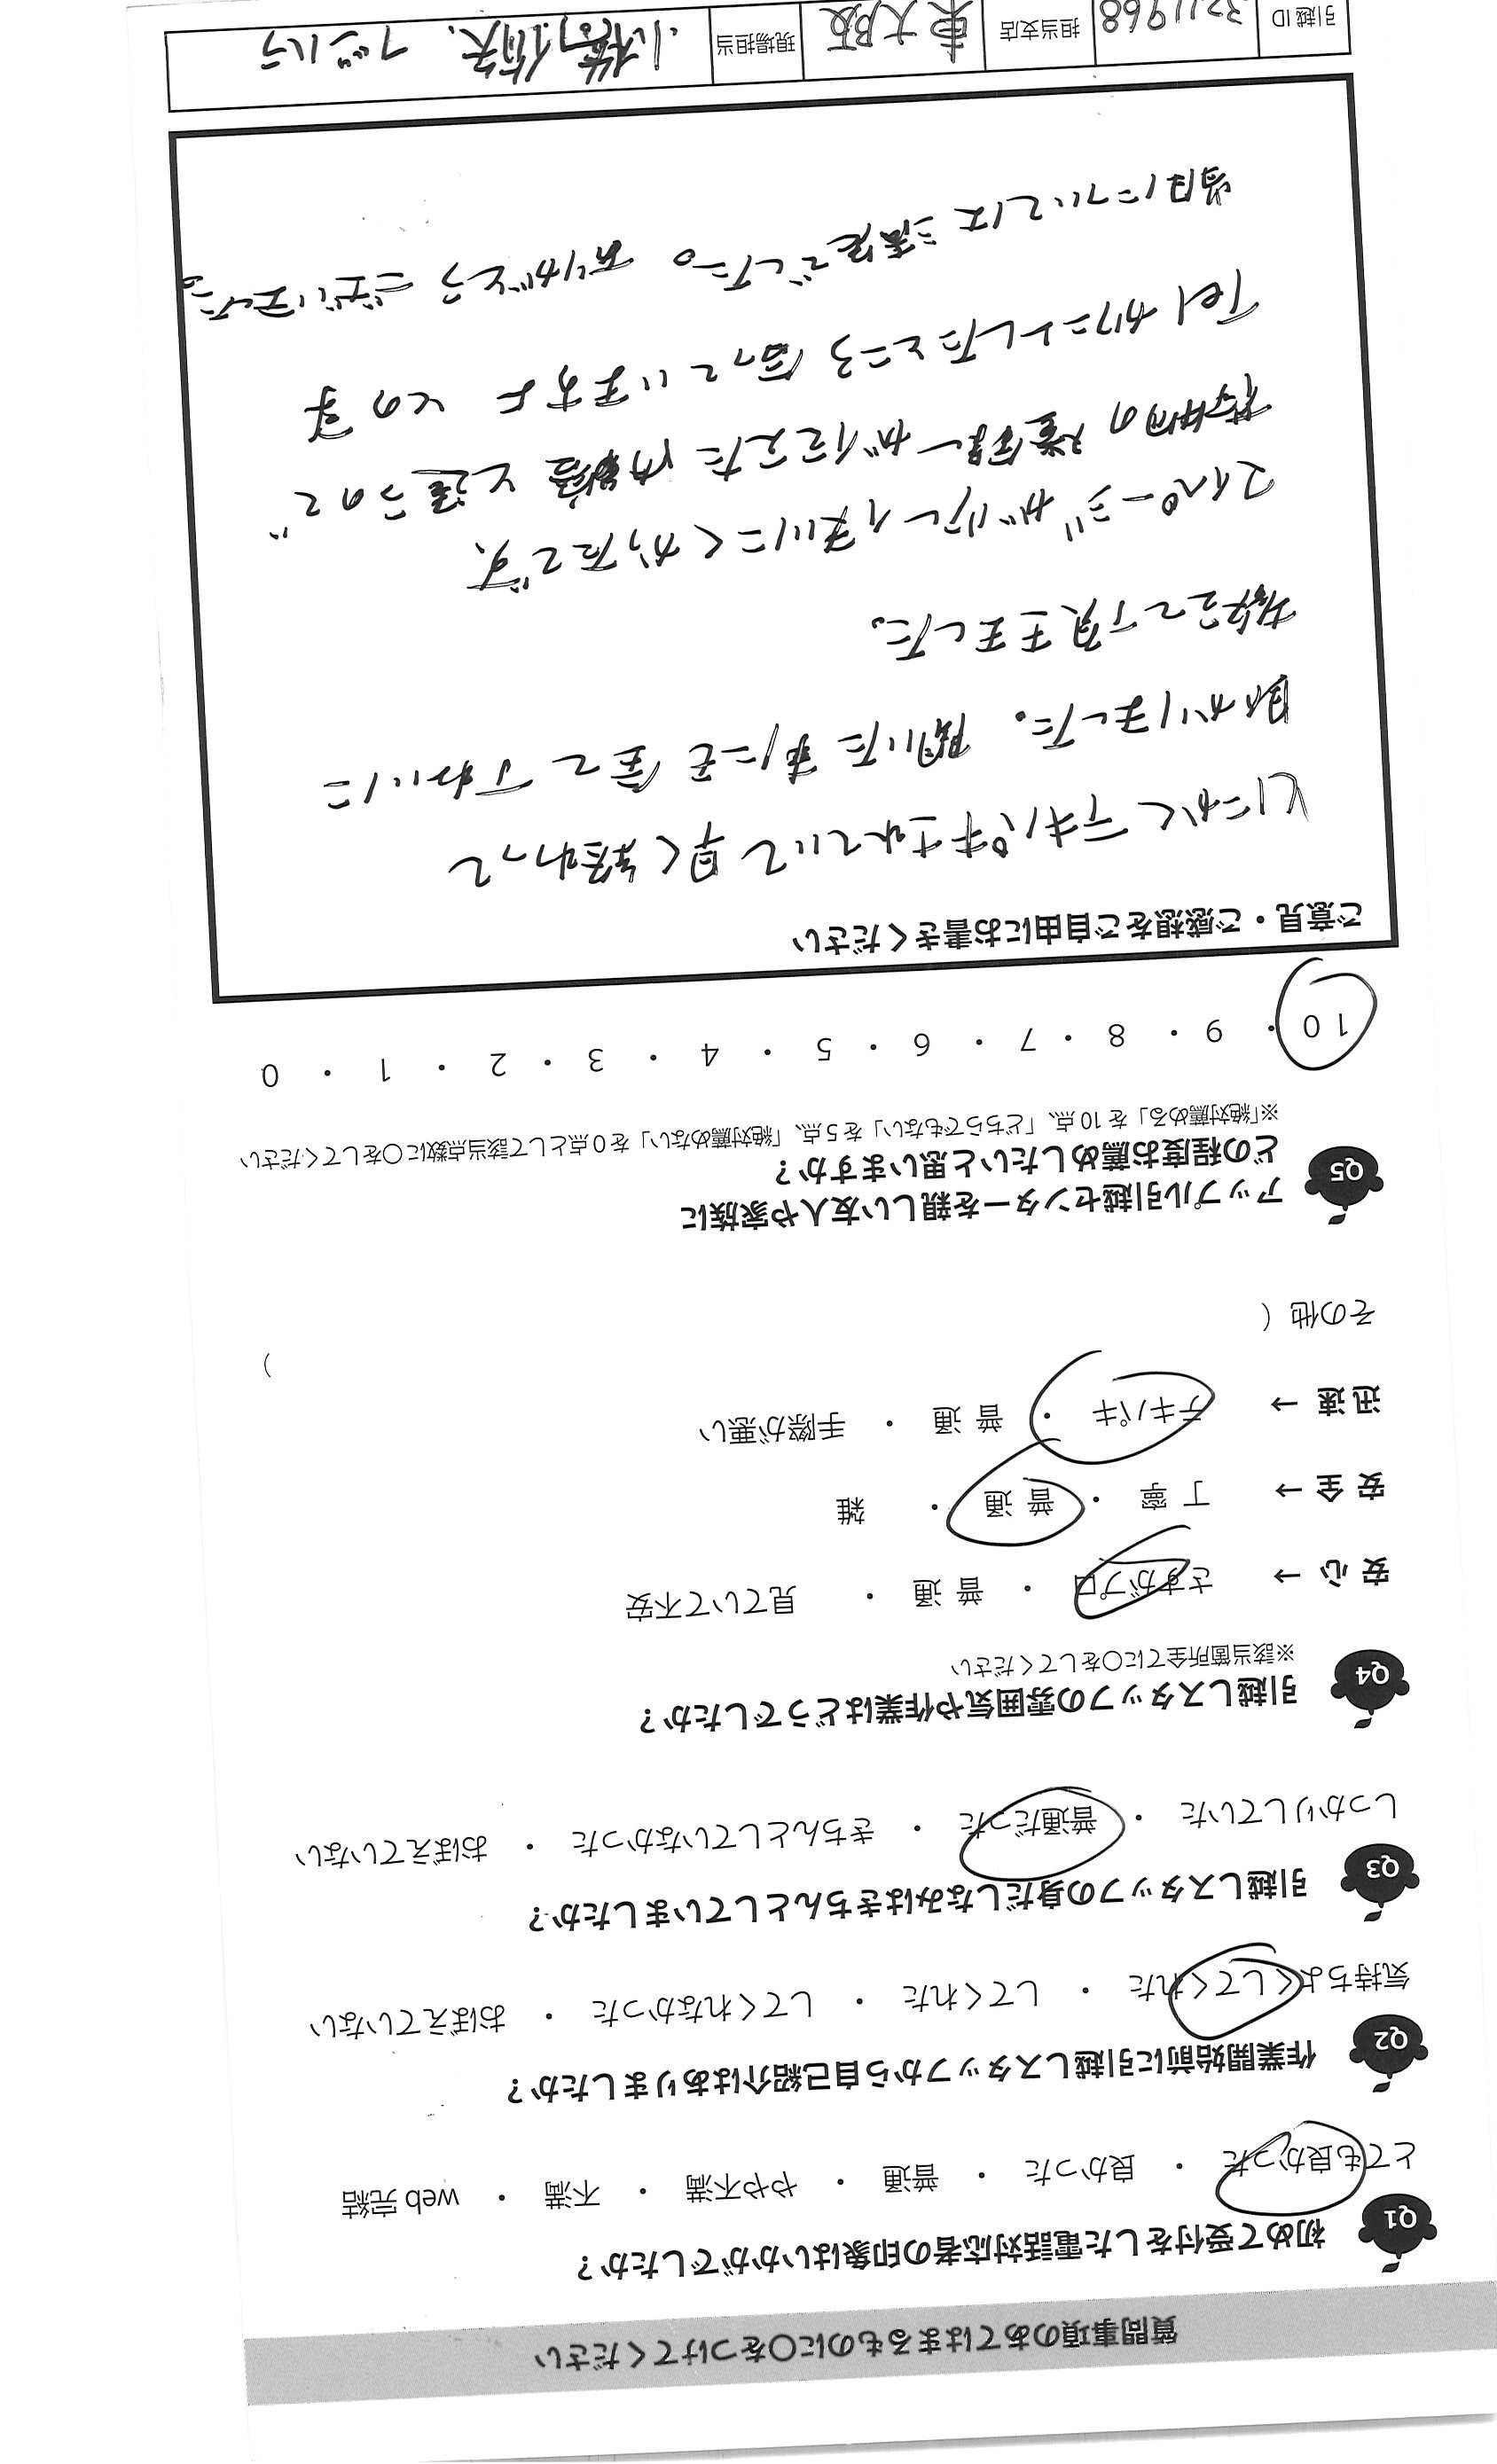 質問事項のあてはまるものに○をつけてください
Q1 初めて受付をした電話対応者の印象はいかがでしたか?
とても良かった ・ 良かった ・ 普通 ・ やや不満 ・ 不満 ・ web完結
Q2 作業開始前に引越しスタッフから自己紹介はありましたか?
気持ちよくしてくれた ・ してくれた ・ してくれなかった ・ おぼえていない
Q3 引越しスタッフの身だしなみはきちんとしていましたか?
しっかりしていた ・ 普通だった ・ きちんとしていなかった ・ おぼえていない
Q4 引越しスタッフの雰囲気や作業はどうでしたか?
※該当箇所全てに○をしてください
安心→ さすがプロ ・ 普通 ・ 見ていて不安
安全→ 丁寧 ・ 普通 ・ 雑
迅速→ テキパキ ・ 普通 ・ 手際が悪い
その他( )
Q5 アップル引越センターを親しい友人や家族に
どの程度お薦めしたいと思いますか?
※「絶対薦める」を10点、「どちらでもない」を5点、「絶対薦めない」を0点として該当点数に○をしてください
10 ・ 9 ・ 8 ・ 7 ・ 6 ・ 5 ・ 4 ・ 3 ・ 2 ・ 1 ・ 0
ご意見・ご感想をご自由にお書きください
とにかくテキパキされていて早く終わって
助かりました。聞いた事にも全て丁ねいに
教えて頂きました。
マイページが少し使いにくかったです、
荷物の 伝えた内容と違うので
Telカウントしたところ合っていますよ との事
当日については満足でした。ありがとうございました。
引越ID 3211968 担当支店 東大阪 現場担当 小橋